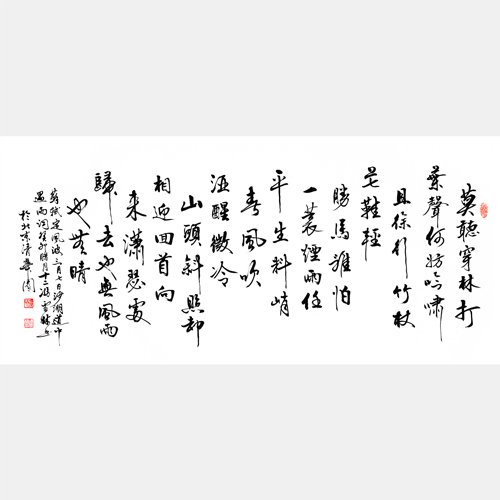 莫聽穿林打
葉聲何妨吟嘯
且徐行竹杖
芒鞋輕
勝馬誰怕
一蓑煙雨任
平生料峭
春風吹
酒醒微冷
山頭斜照却
相迎回首向
来瀟瑟處
歸去也無風雨
也無晴
蘇軾定風波三月七日沙湖道中
遇雨词
於北京清